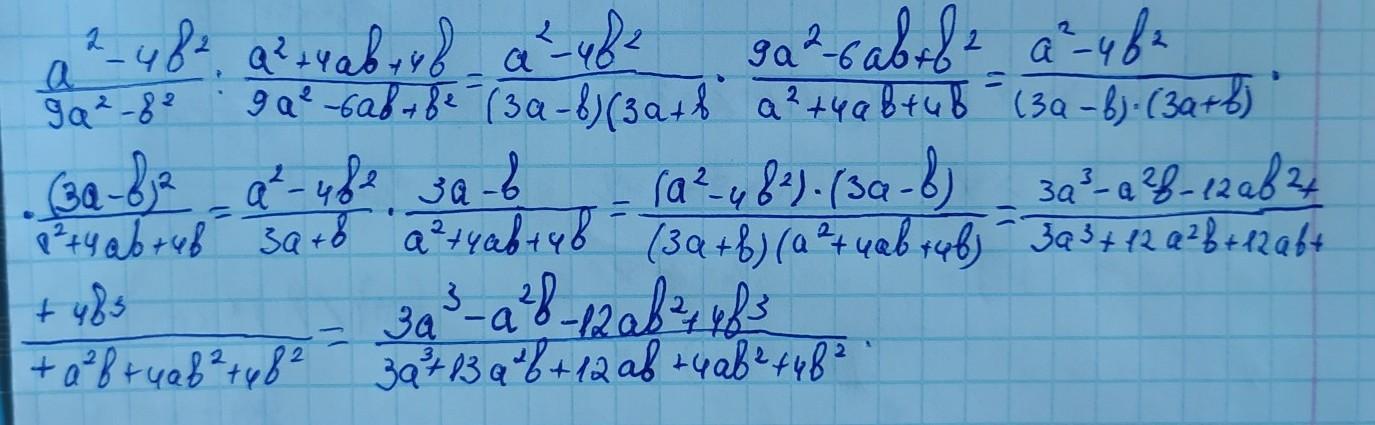 (a² - 4b²)/(9a² - b²) : (a² + 4ab + 4b)/(9a² - 6ab + b²) = (a² - 4b²)/((3a - b)(3a + b) · (9a² - 6ab + b²)/(a² + 4ab + 4b) = (a² - 4b²)/((3a - b)·(3a + b)) ·
· (3a - b)²/(a² + 4ab + 4b) = (a² - 4b²)/(3a + b) · (3a - b)/(a² + 4ab + 4b) = ((a² - 4b²)·(3a - b))/((3a + b)(a² + 4ab + 4b)) = (3a³ - a²b - 12ab² +)/(3a³ + 12a²b + 12ab +)
(+ 4b³)/(+ a²b + 4ab² + 4b²) = (3a³ - a²b - 12ab² + 4b³)/(3a³ + 13a²b + 12ab + 4ab² + 4b²).